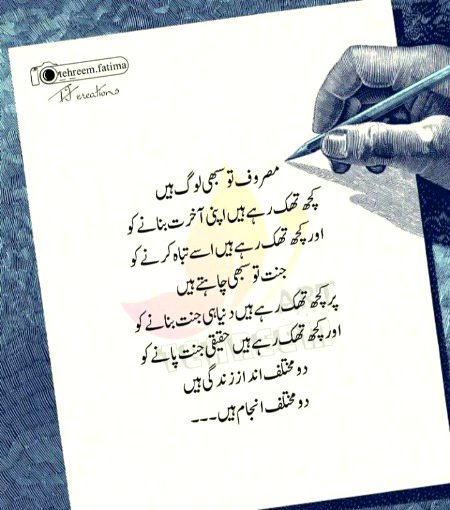 tehreem.fatima
TF creations
مصروف تو سبھی لوگ ہیں
کچھ تھک رہے ہیں اپنی آخرت بنانے کو
اور کچھ تھک رہے ہیں اسے تباہ کرنے کو
جنت تو سبھی چاہتے ہیں
پر کچھ تھک رہے ہیں دنیا ہی جنت بنانے کو
اور کچھ تھک رہے ہیں حقیقی جنت پانے کو
دو مختلف انداز زندگی ہیں
دو مختلف انجام ہیں۔۔۔